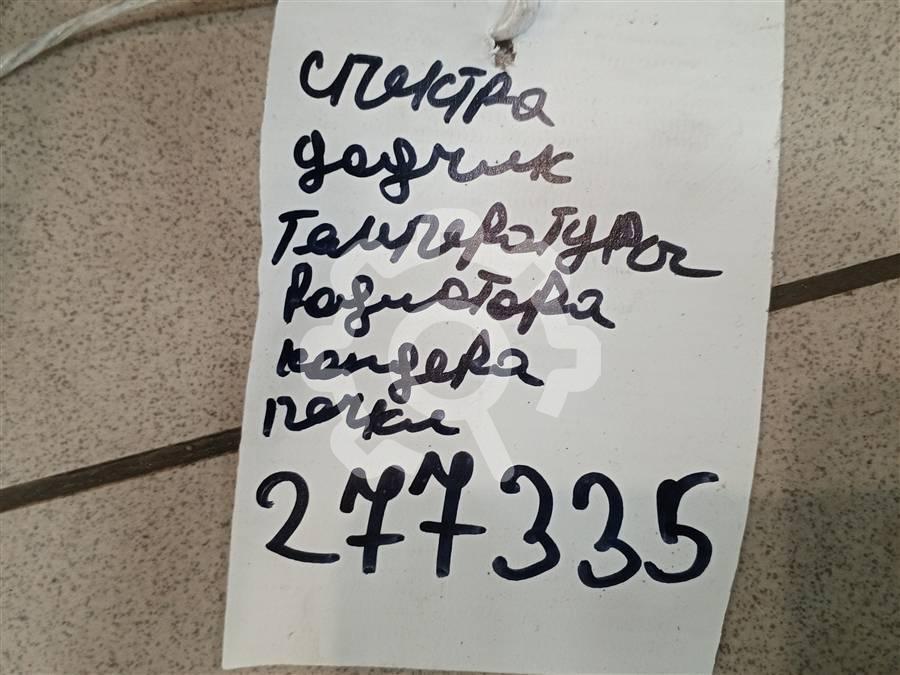 спектра
дадчик
температуры
радиатора
кандера
печки
277335